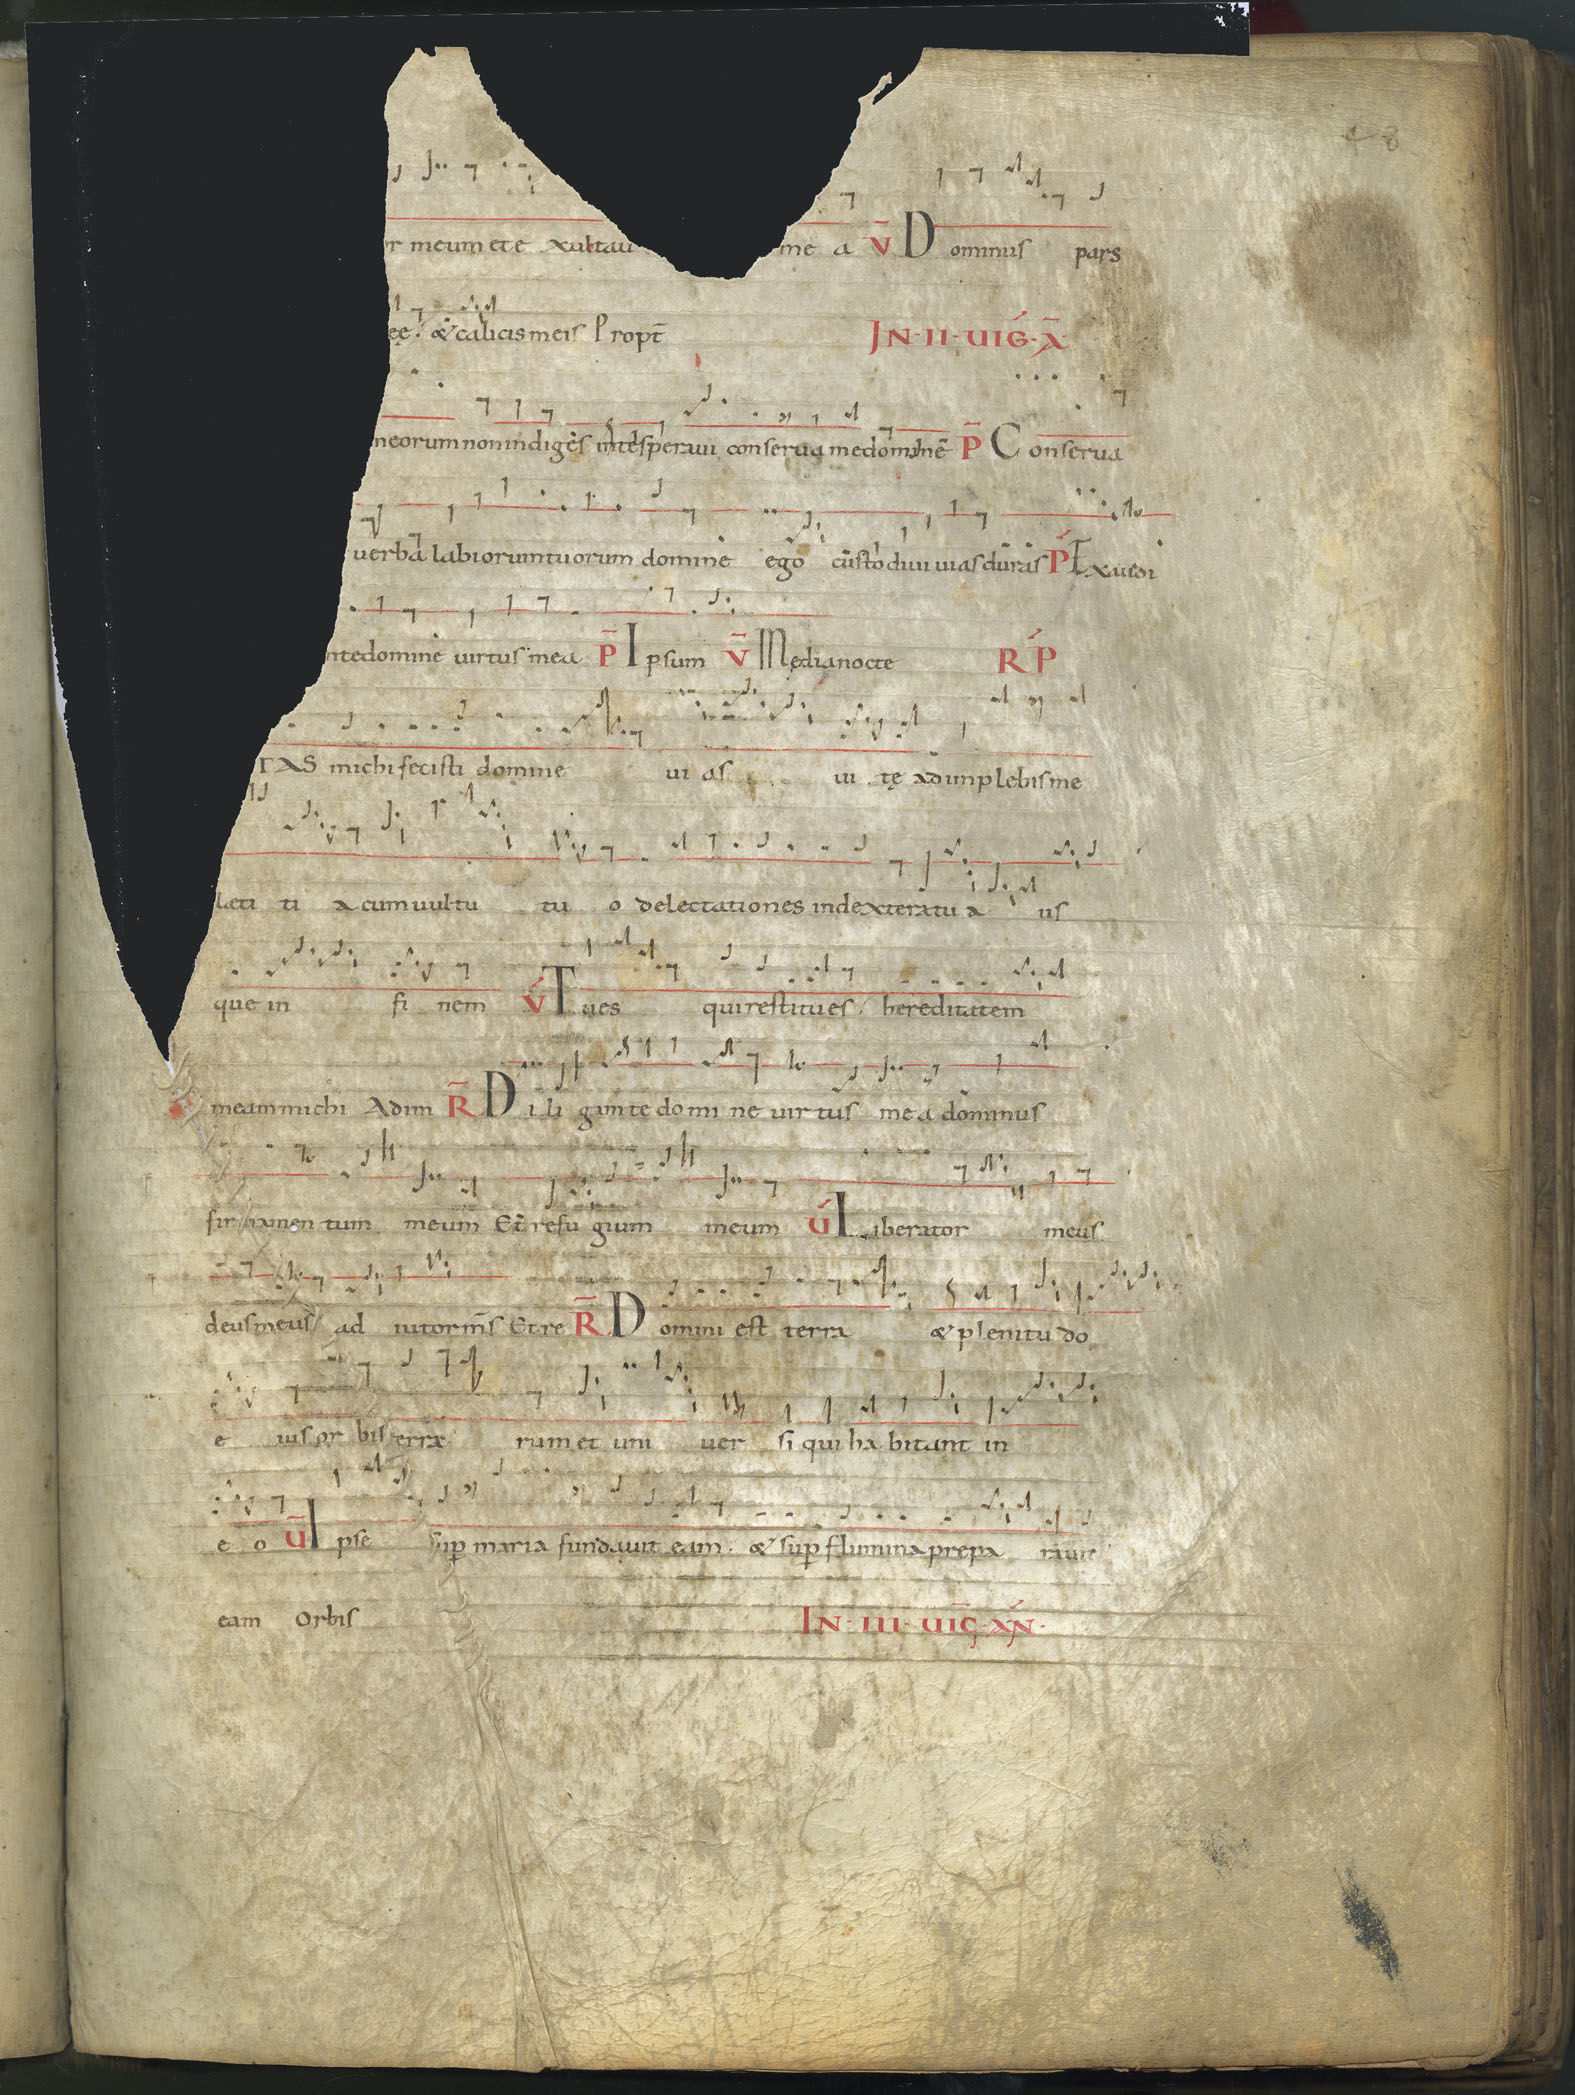 48
r meum et e xultau me a V̄ Dominus pars
eę· & calicis meis Propt̄
IN·II·UIG̅·A̅
meorum non indiges inte speraui conserua me domine P̄ Conserua
uerba labiorum tuorum domine ego custodiui uias duras P̄ Exaudi
nte domine uirtus mea P̄ Ipsum V̄ Media nocte RP
TAS michi fecisti domine ui as ui tę adimplebis me
læti ti a cum uultu tu o delectationes in dextera tu a us
que in fi nem V́ Tu es qui restitues hereditatem
meam michi Adim R̄ Di li gam te do mi ne uir tus me a dominus
firmamen tum meum Et refu gium meum Ú Liberator meus
deus meus ad iutor m̄s Et re R̄ Domini est terra & plenitu do
e ius or bis terra rum et uni uer si qui ha bitant in
e o Ū Ipse sup̄ maria fundauit eam· & sup̄ flumina prepa rauit
eam Orbis IN·III·UIG̅·AN̄·